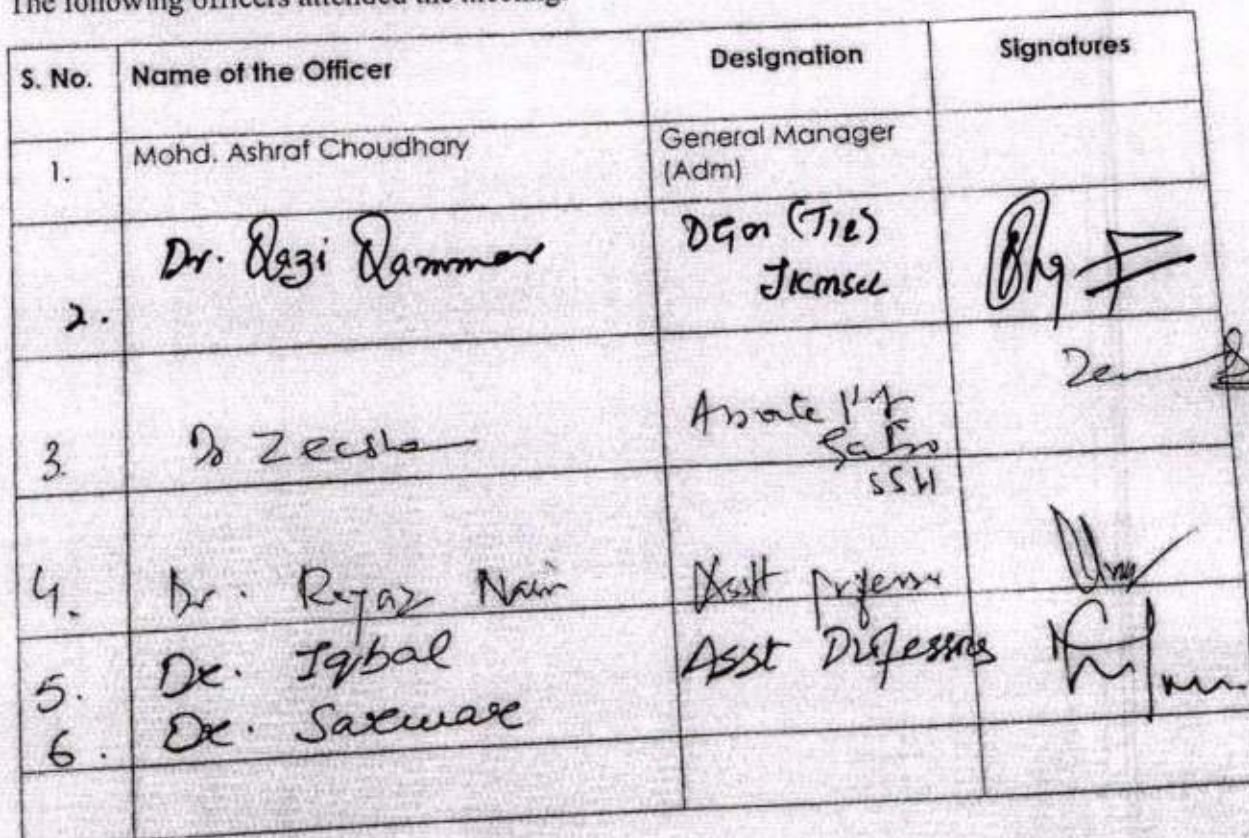 The following officers attended the meeting:
S. No. Name of the Officer Designation Signatures
1. Mohd. Ashraf Choudhary General Manager
(Adm)
2. Dr. Qazi Qammar DGM (TIE)
JKMSCL
3. Dr Zeeshan
SSH
4. Dr. Reyaz Asstt Professor
5. Dr. Iqbal Asst Professors
6. Dr. Sareware